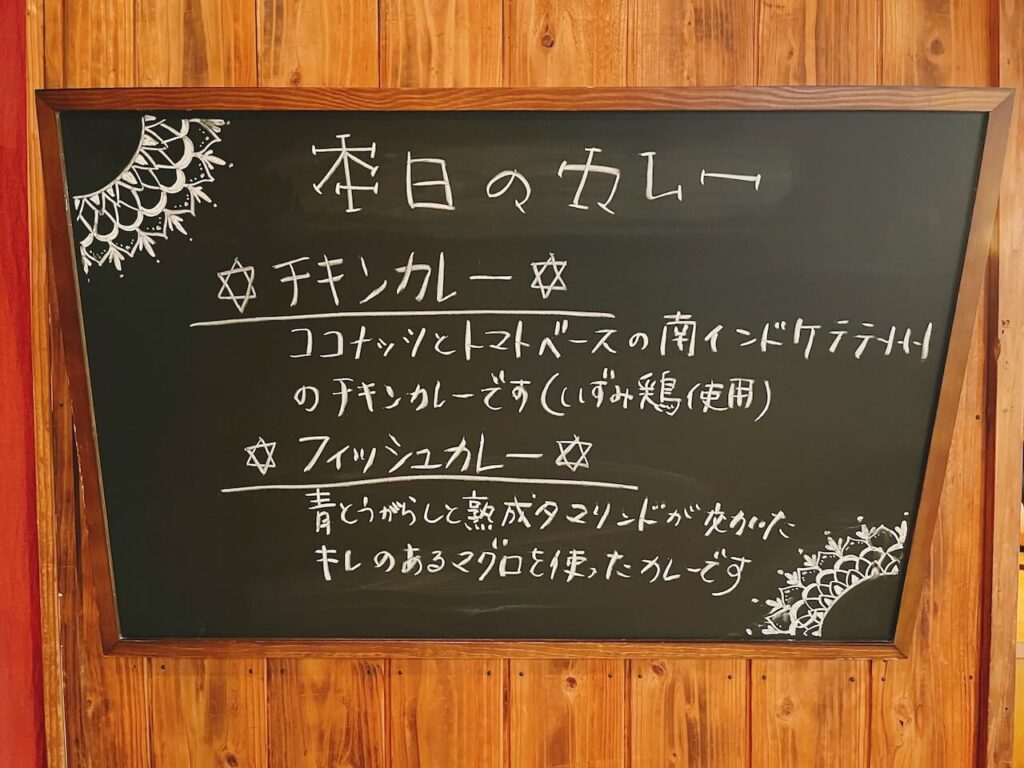 本日のカレー
✡チキンカレー✡
ココナッツとトマトベースの南インドケララ州
のチキンカレーです(いずみ鶏使用)
✡フィッシュカレー✡
青とうがらしと熟成タマリンドが効いた
キレのあるマグロを使ったカレーです